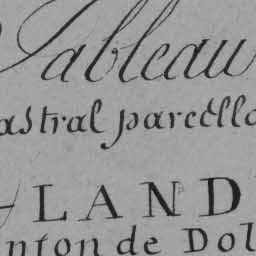 Tableau
astral parcella
LAND
anton de Dol